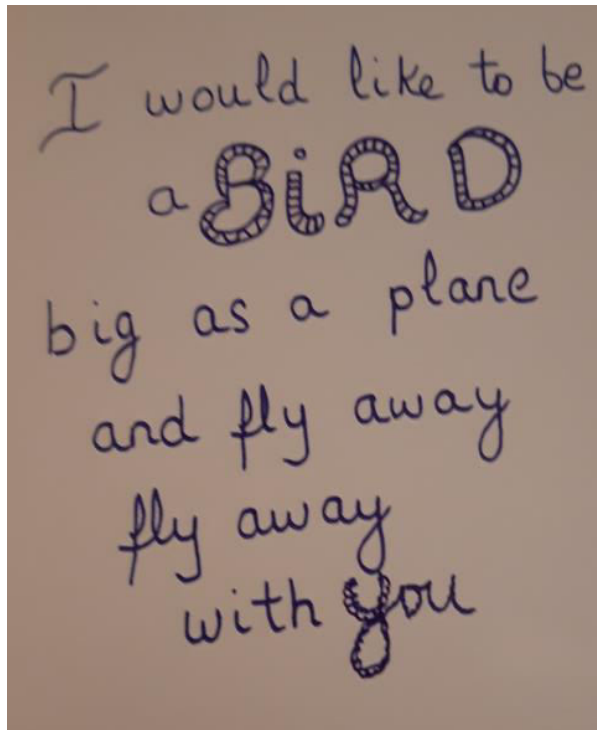 I would like to be
a BiRD
big as a plane
and fly away
fly away
with you